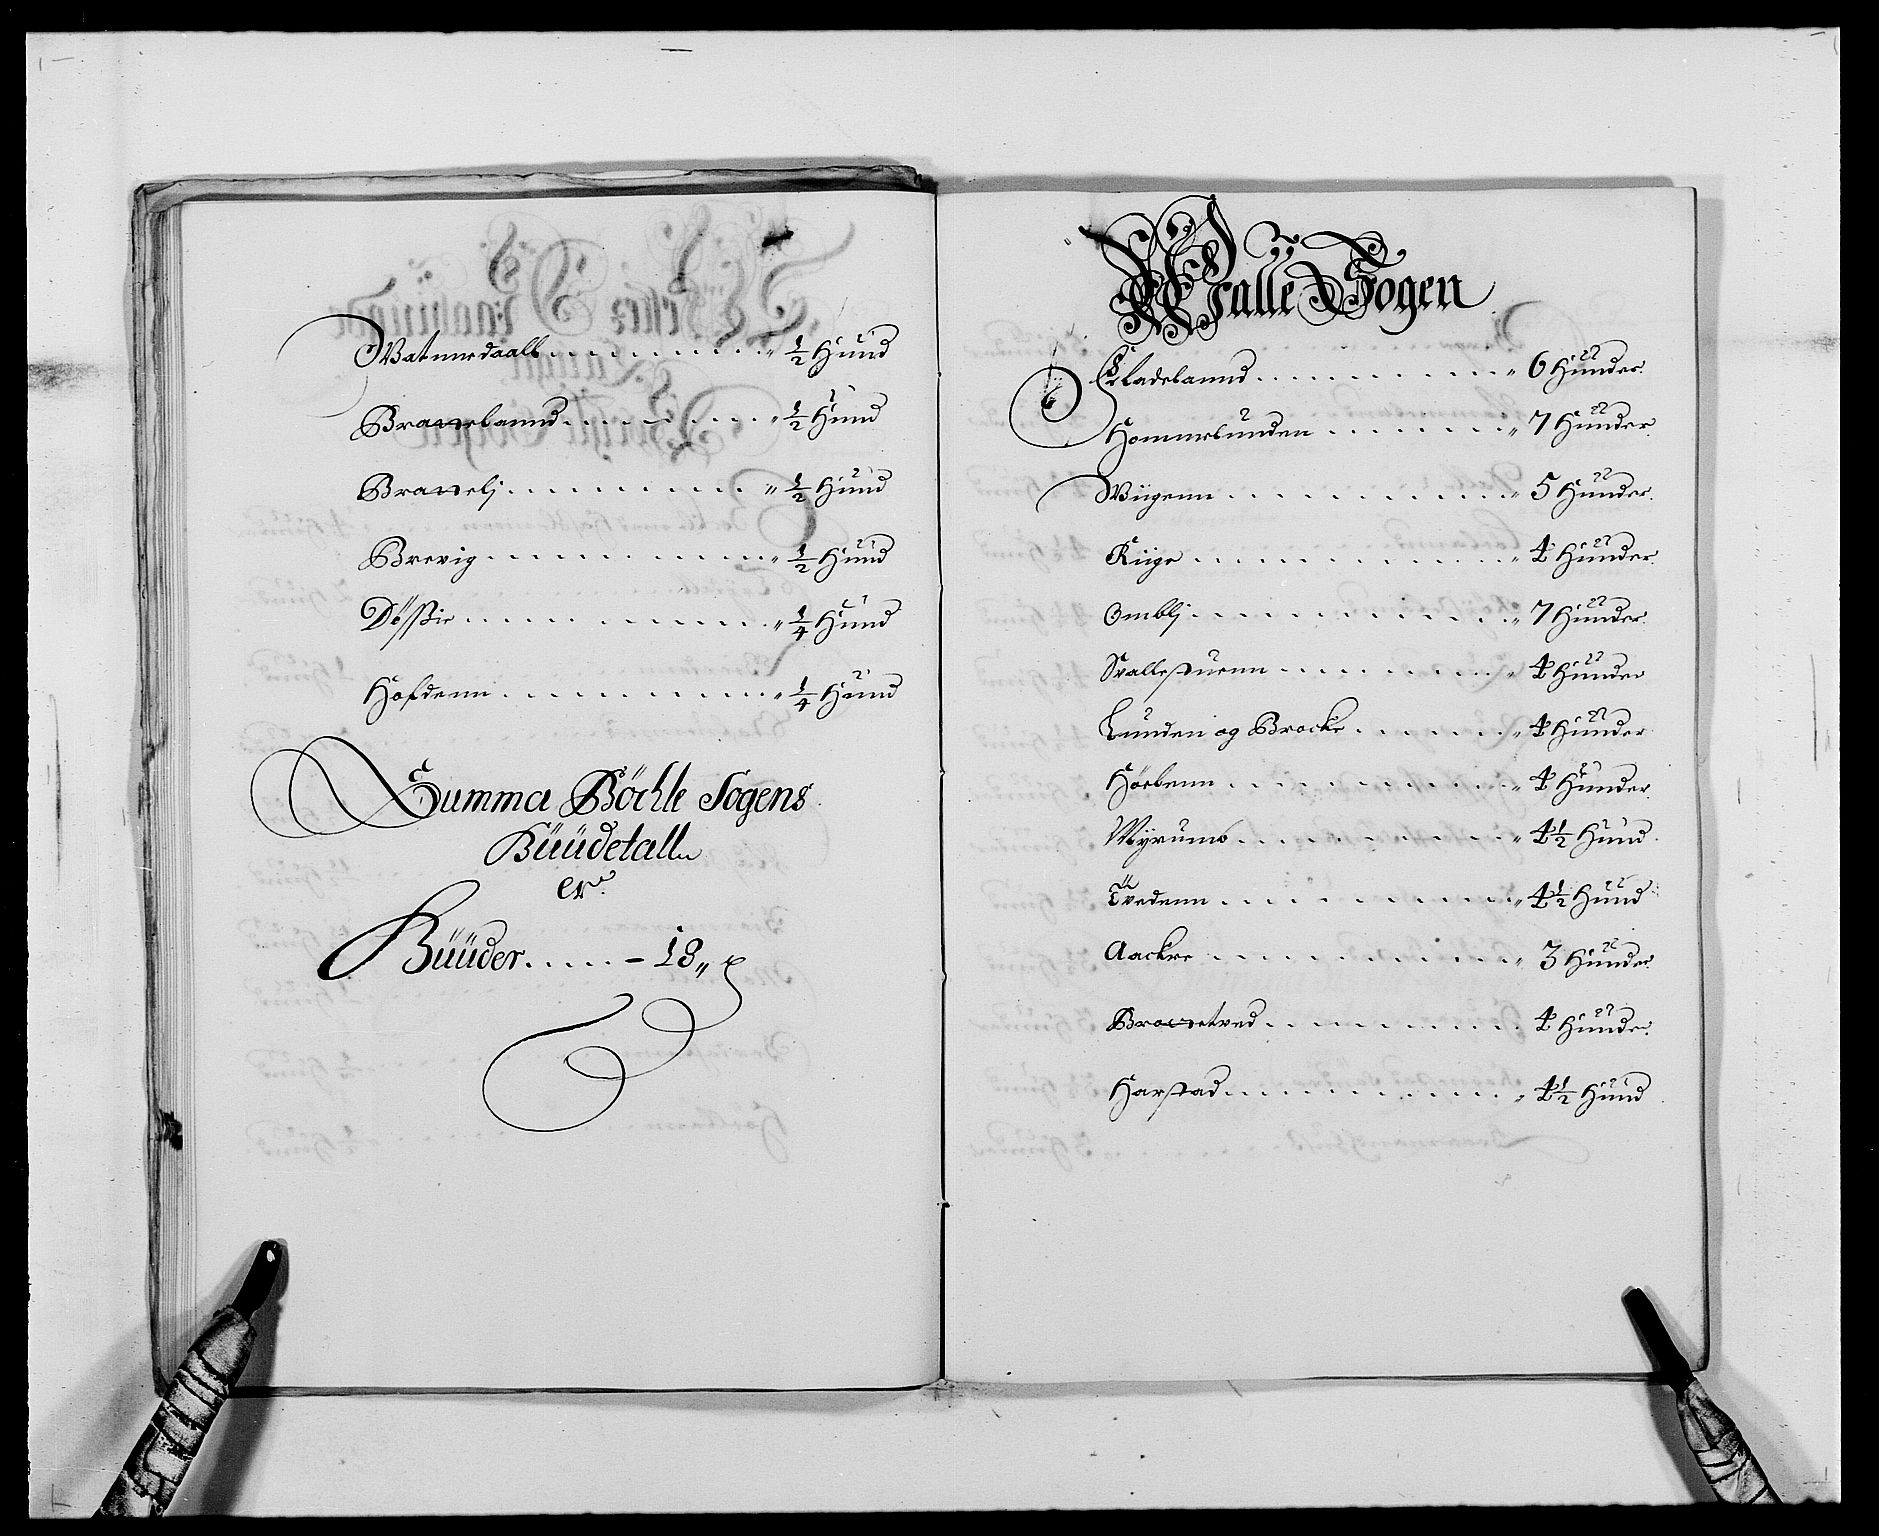 Vatnnedaall . . . . . . . . . „ ½ Hund
Brattelannd . . . . . . . . „ ½ Hund
Brattelj . . . . . . . . . . „ ½ Hund
Brevig . . . . . . . . . . . „ ½ Hund
Døssie . . . . . . . . . . . „ ¼ Hund
Hofdenn . . . . . . . . . . „ ¼ Hund
Summa Böchle Sogens
Büüdetall
er
Büüder . . . . . – 18 „
Walle Sogen
Fladelannd . . . . . . . . . „ 6 Hunder
Hommelunden . . . . . . . „ 7 Hunder
Viigenn . . . . . . . . . . „ 5 Hunder
Riige . . . . . . . . . . . „ 4 Hunder
Omblj . . . . . . . . . . . „ 7 Hunder
Svallestuenn . . . . . . . . „ 4 Hunder
Lunden og Brocke . . . . . „ 4 Hunder
Hoelenn . . . . . . . . . . „ 4 Hunder
Myrumb . . . . . . . . . . „ 4½ Hund
Tvedenn . . . . . . . . . . „ 4½ Hund
Aackre . . . . . . . . . . . „ 3 Hunder
Brottetved . . . . . . . . . . 4 Hunder
Harstad . . . . . . . . . . „ 4½ Hund